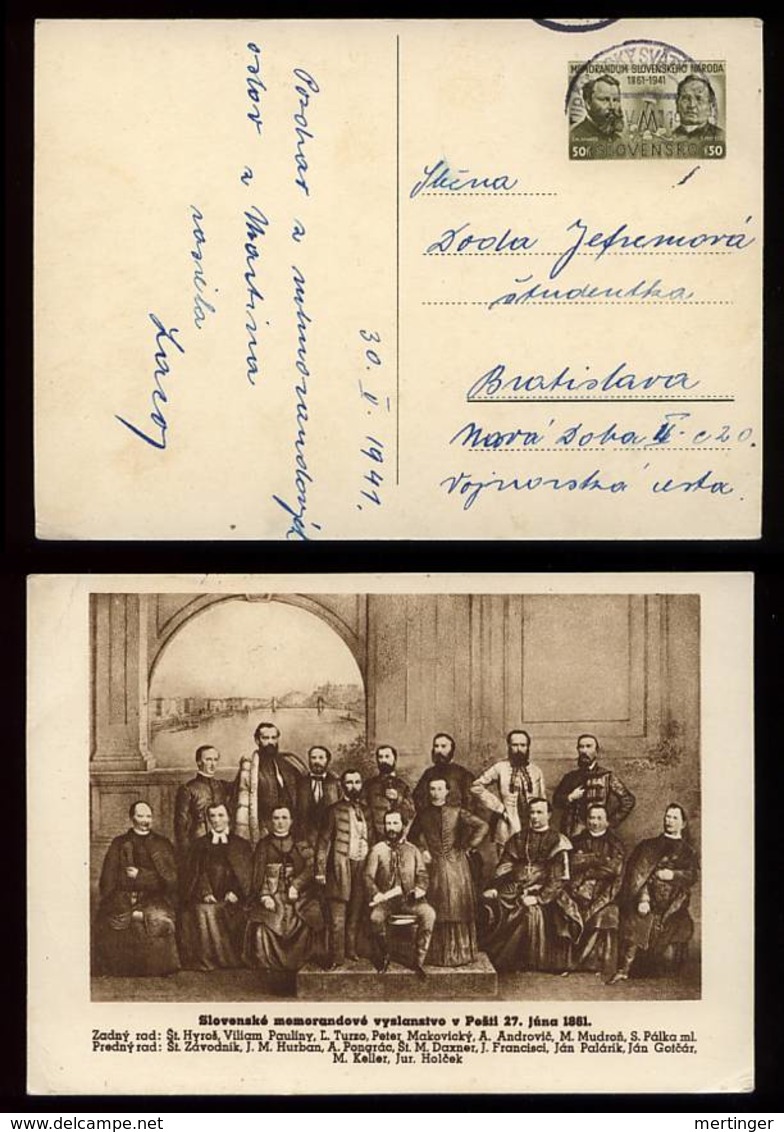 MEMORANDUM SLOVENSKÉHO NÁRODA
1861-1941
50 SLOVENSKO 50
Slečna
Doda Jefremová
študentka
Bratislava
Nová Doba II. c 20.
Vajnorská cesta.
30. V. 1941.
Pozdrav z memorandových
oslov z Martina
Slovenské memorandové vyslanstvo v Pešti 27. júna 1861.
Zadný rad: Št. Hyroš, Viliam Pauliny, Ľ. Turzo, Peter Makovický, A. Androvič, M. Mudroň, S. Pálka ml.
Predný rad: Št. Závodník, J. M. Hurban, A. Pongrác, Št. M. Daxner, J. Francisci, Ján Palárik, Ján Gotčár,
M. Keller, Jur. Holček
mertinger